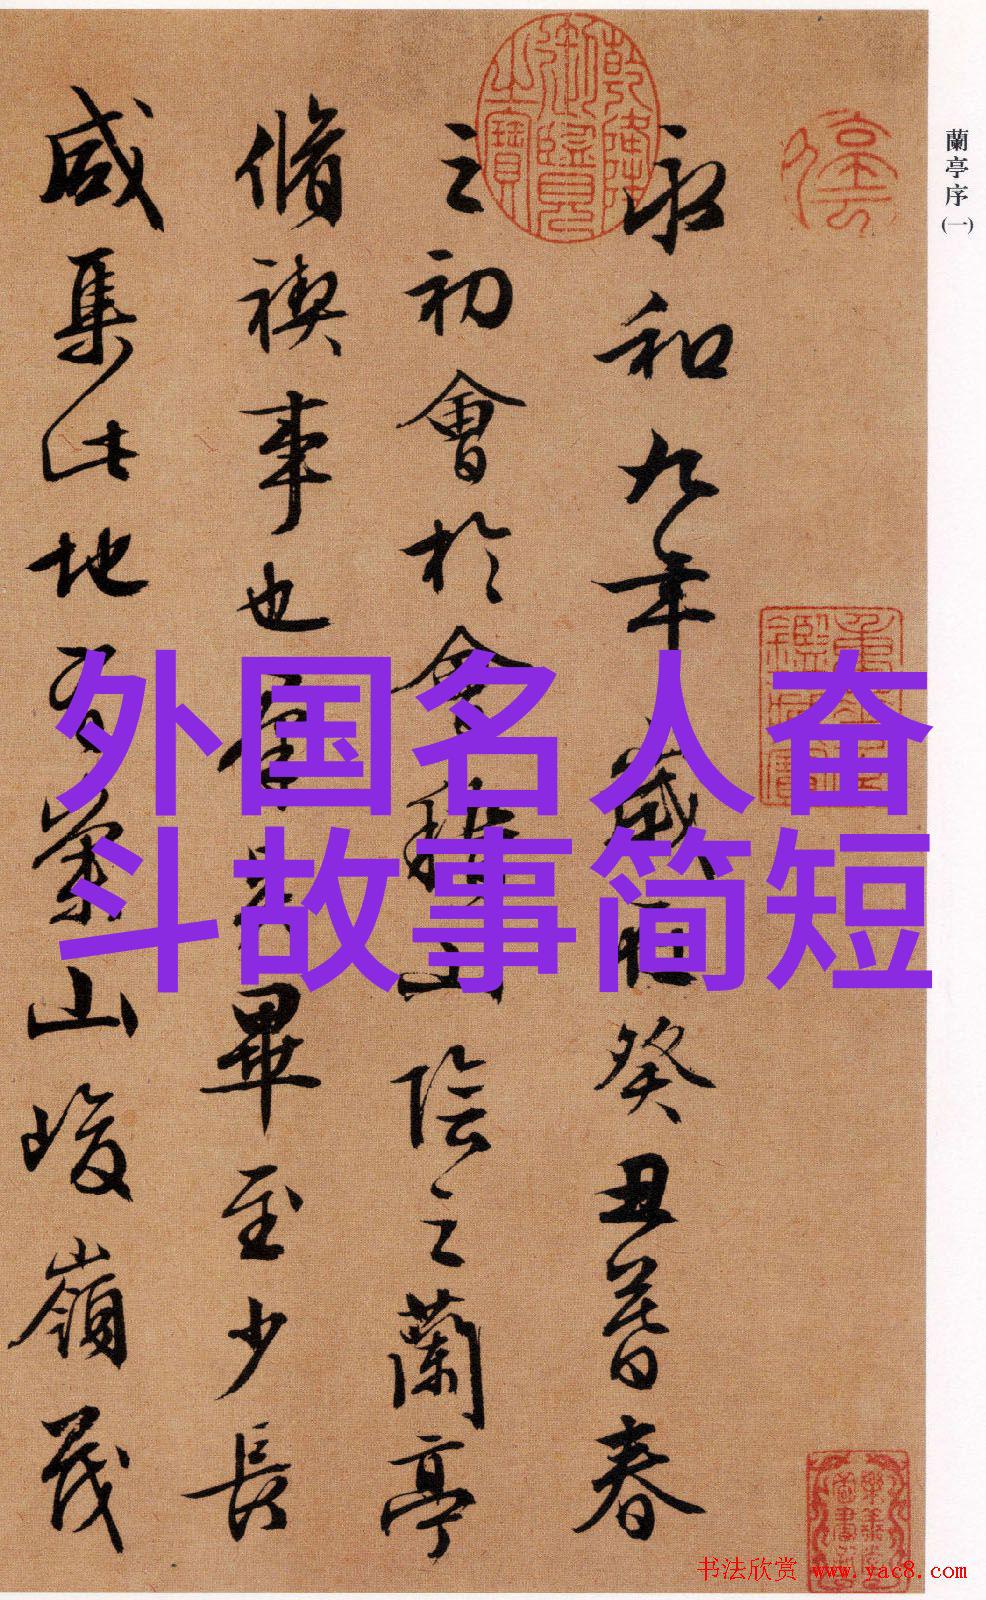 蘭亭序(一)
永和九年歲在癸丑暮春
之初會於會稽山陰之蘭亭
脩禊事也羣賢畢至少長
咸集此地有崇山峻嶺茂
乾隆御覽之寶
外国名人奋
斗故事简短
书法欣赏 www.yac8.com